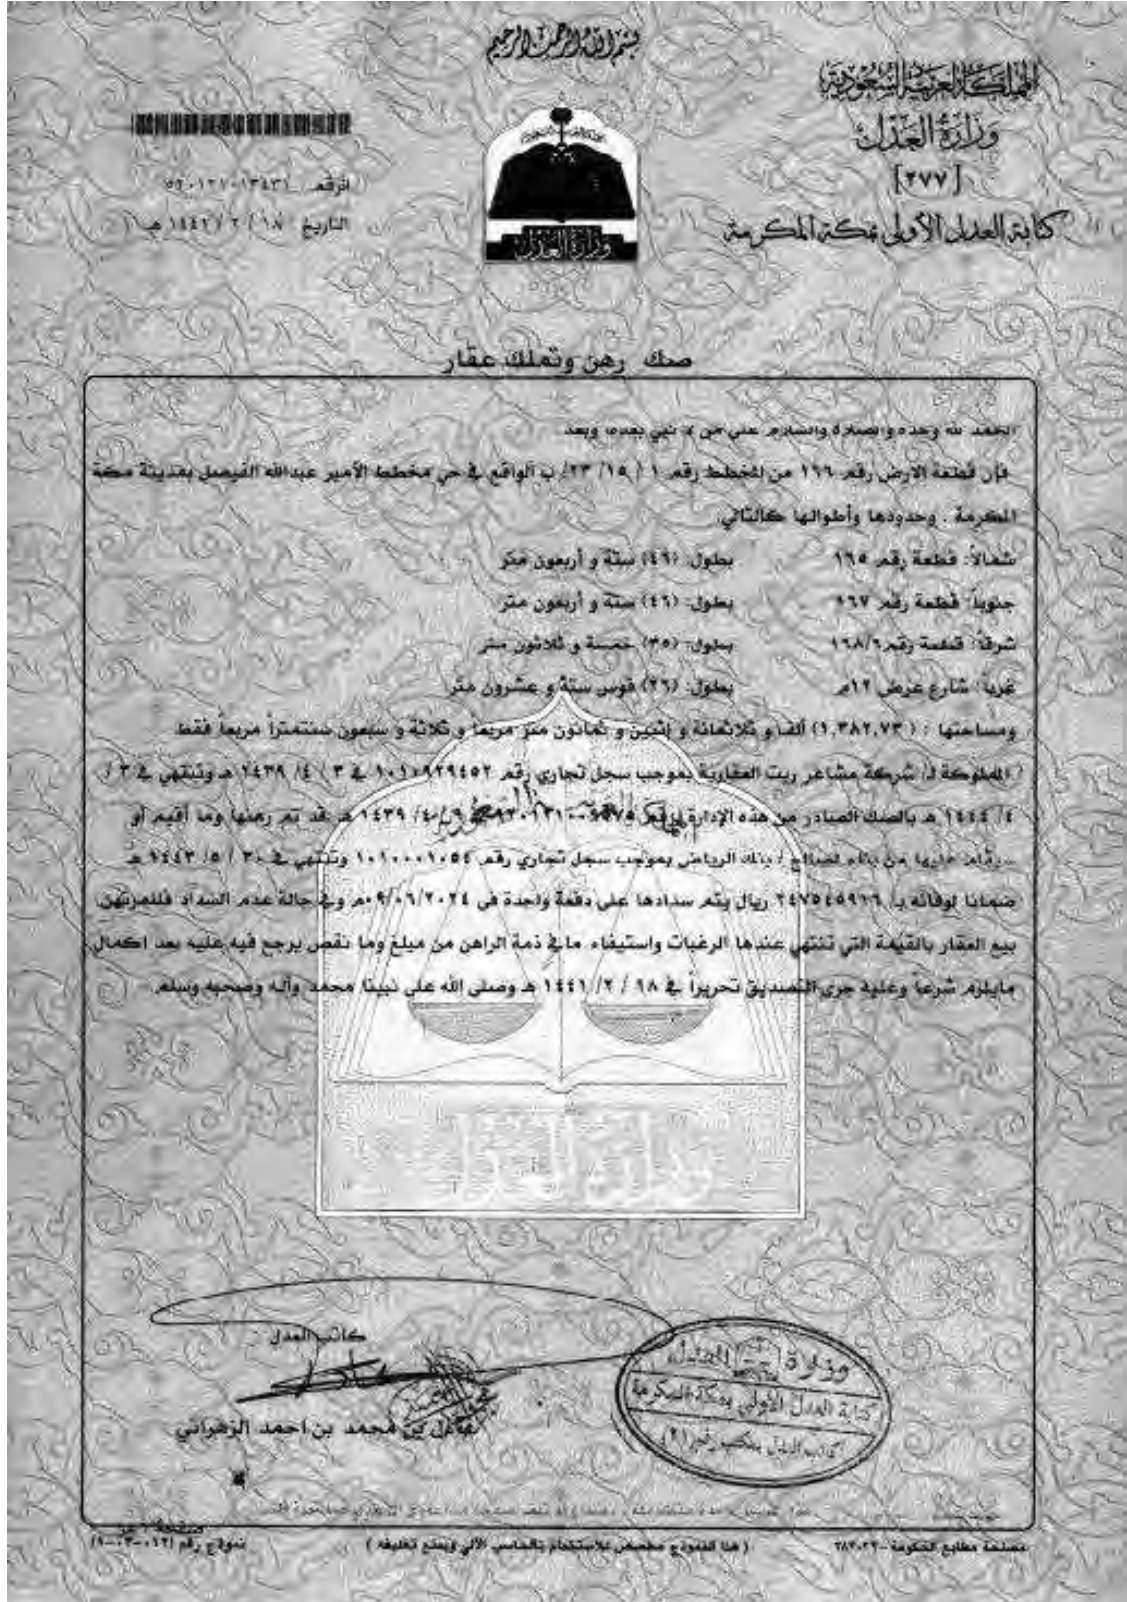 بسم الله الرحمن الرحيم
المملكة العربية السعودية
وزارة العدل
[٢٧٧]
كتابة العدل الأولى بمكة المكرمة
وزارة العدل
الرقم
التاريخ ١٨ / ٢ / هـ
صك رهن وتملك عقار
الحمد لله وحده والصلاة والسلام على من لا نبي بعده، وبعد
فإن قطعة الارض رقم ١٦٦ من المخطط رقم ١ / ١٥ / ٢٣/ ب الواقع في حي مخطط الأمير عبدالله الفيصل بمدينة مكة
المكرمة . وحدودها وأطوالها كالتالي:
شمالاً: قطعة رقم ١٦٥ بطول: (٤٦) ستة و أربعون متر
جنوباً: قطعة رقم ١٦٧ بطول: (٤٦) ستة و أربعون متر
شرقاً: قطعة رقم ١٦٨/٦ بطول: (٣٥) خمسة و ثلاثون متر
غرباً: شارع عرض ١٢م بطول: (٢٦) قوس ستة و عشرون متر
ومساحتها : (١,٣٨٢.٧٣) ألف و ثلاثمائة و إثنين و ثمانون متر مربعاً و ثلاثة و سبعون سنتمتراً مربعاً فقط
المملوكة لـ/ شركة مشاعر ريت العقارية بموجب سجل تجاري رقم ١٠١٠٩٢٩٤٥٢ في ٣ / ٤/ ١٤٣٩ هـ وتنتهي في ٣ /
٤/ ١٤٤٤ هـ بالصك الصادر من هذه الإدارة برقم في ٩ / ٤/ ١٤٣٩ هـ قد تم رهنها وما أقيم أو
سيقام عليها من بناء لصالح / بنك الرياض بموجب سجل تجاري رقم ١٠١٠٠٠١٠٥٤ وتنتهي في ٣٠ / ٥/ ١٤٤٣ هـ
ضمانا لوفائه بـ/ ٢٤٧٥٤٥٩١٦ ريال يتم سدادها على دفعة واحدة في ٠٩/٠٦/٢٠٢٤م وفي حالة عدم السداد فللمرتهن
بيع العقار بالقيمة التي تنتهي عندها الرغبات واستيفاء ما في ذمة الراهن من مبلغ وما نقص يرجع فيه عليه بعد اكمال
مايلزم شرعاً وعليه جرى التصديق تحريراً في ١٨ / ٢/ ١٤٤١ هـ وصلى الله على نبينا محمد وآله وصحبه وسلم.
وزارة العدل
كاتب العدل
عادل بن محمد بن احمد الزهراني
وزارة العدل
كتابة العدل الأولى بمكة المكرمة
مصلحة مطابع الحكومة
( هذا النموذج مخصص للاستخدام بالحاسب الآلي ويمنع تغليفه )
نموذج رقم